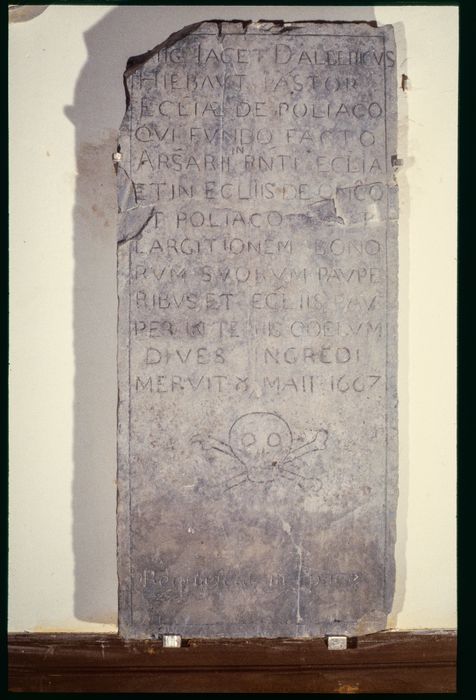 HIC IACET D ALBERICVS
HIEBAVT PASTOR
ECLIÆ DE POLIACO
QVI FVNDO FACTO
IN
ECLIA
ET IN ECLIIS DE
ET POLIACO
LARGITIONEM BONO
RVM SVORVM PAVPE
RIBVS ET ECLIIS PAV
PER IN TERRIS COELVM
DIVES INGREDI
MERVIT 8 MAII 1667
Requiescat in pace